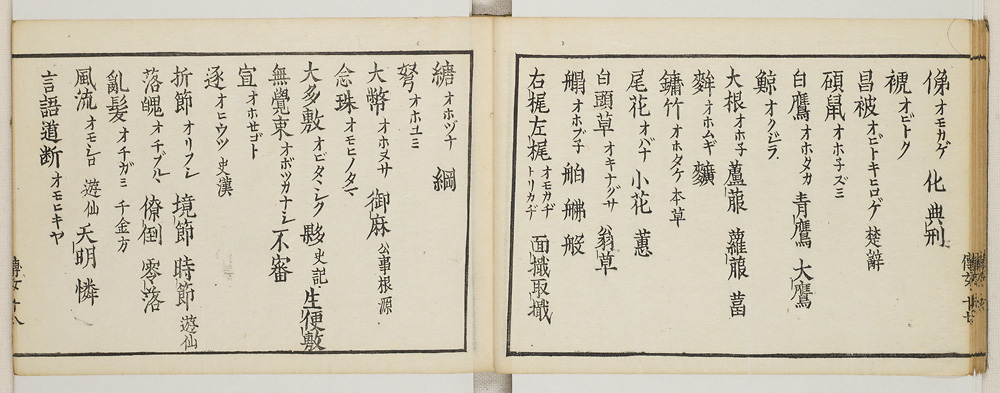 俤オモカゲ 化 典刑
褫オビトク
昌被オビトキヒロゲ 楚辭
碩鼠オホネズミ
白鷹オホタカ 青鷹 大鷹
鯨オクジラ
大根オホ子 蘆菔 蘿菔 葍
麰オホムギ 䵃
鏞竹オホタケ 本草
尾花オバナ 小花 蕙
白頭草オキナグサ 翁草
艒オホブ子 舶 艜 般
右梶左梶オモカヂトリカヂ 面擑取擑
䌅オホヅナ 綱
弩オホユミ
大幣オホヌサ 御麻 公事根源
念珠オモヒノタマ
大多敷オビタヽシク 夥 史記 生便敷
無覺束オボツカナシ 不審
宜オホセゴト
逐オヒウツ 史漢
折節オリフシ 境節 時節 遊仙
落魄オチブルヽ 僚倒 零落
亂髪オチガミ 千金方
風流オモシロ 遊仙 天明 憐
言語道断オモヒキヤ